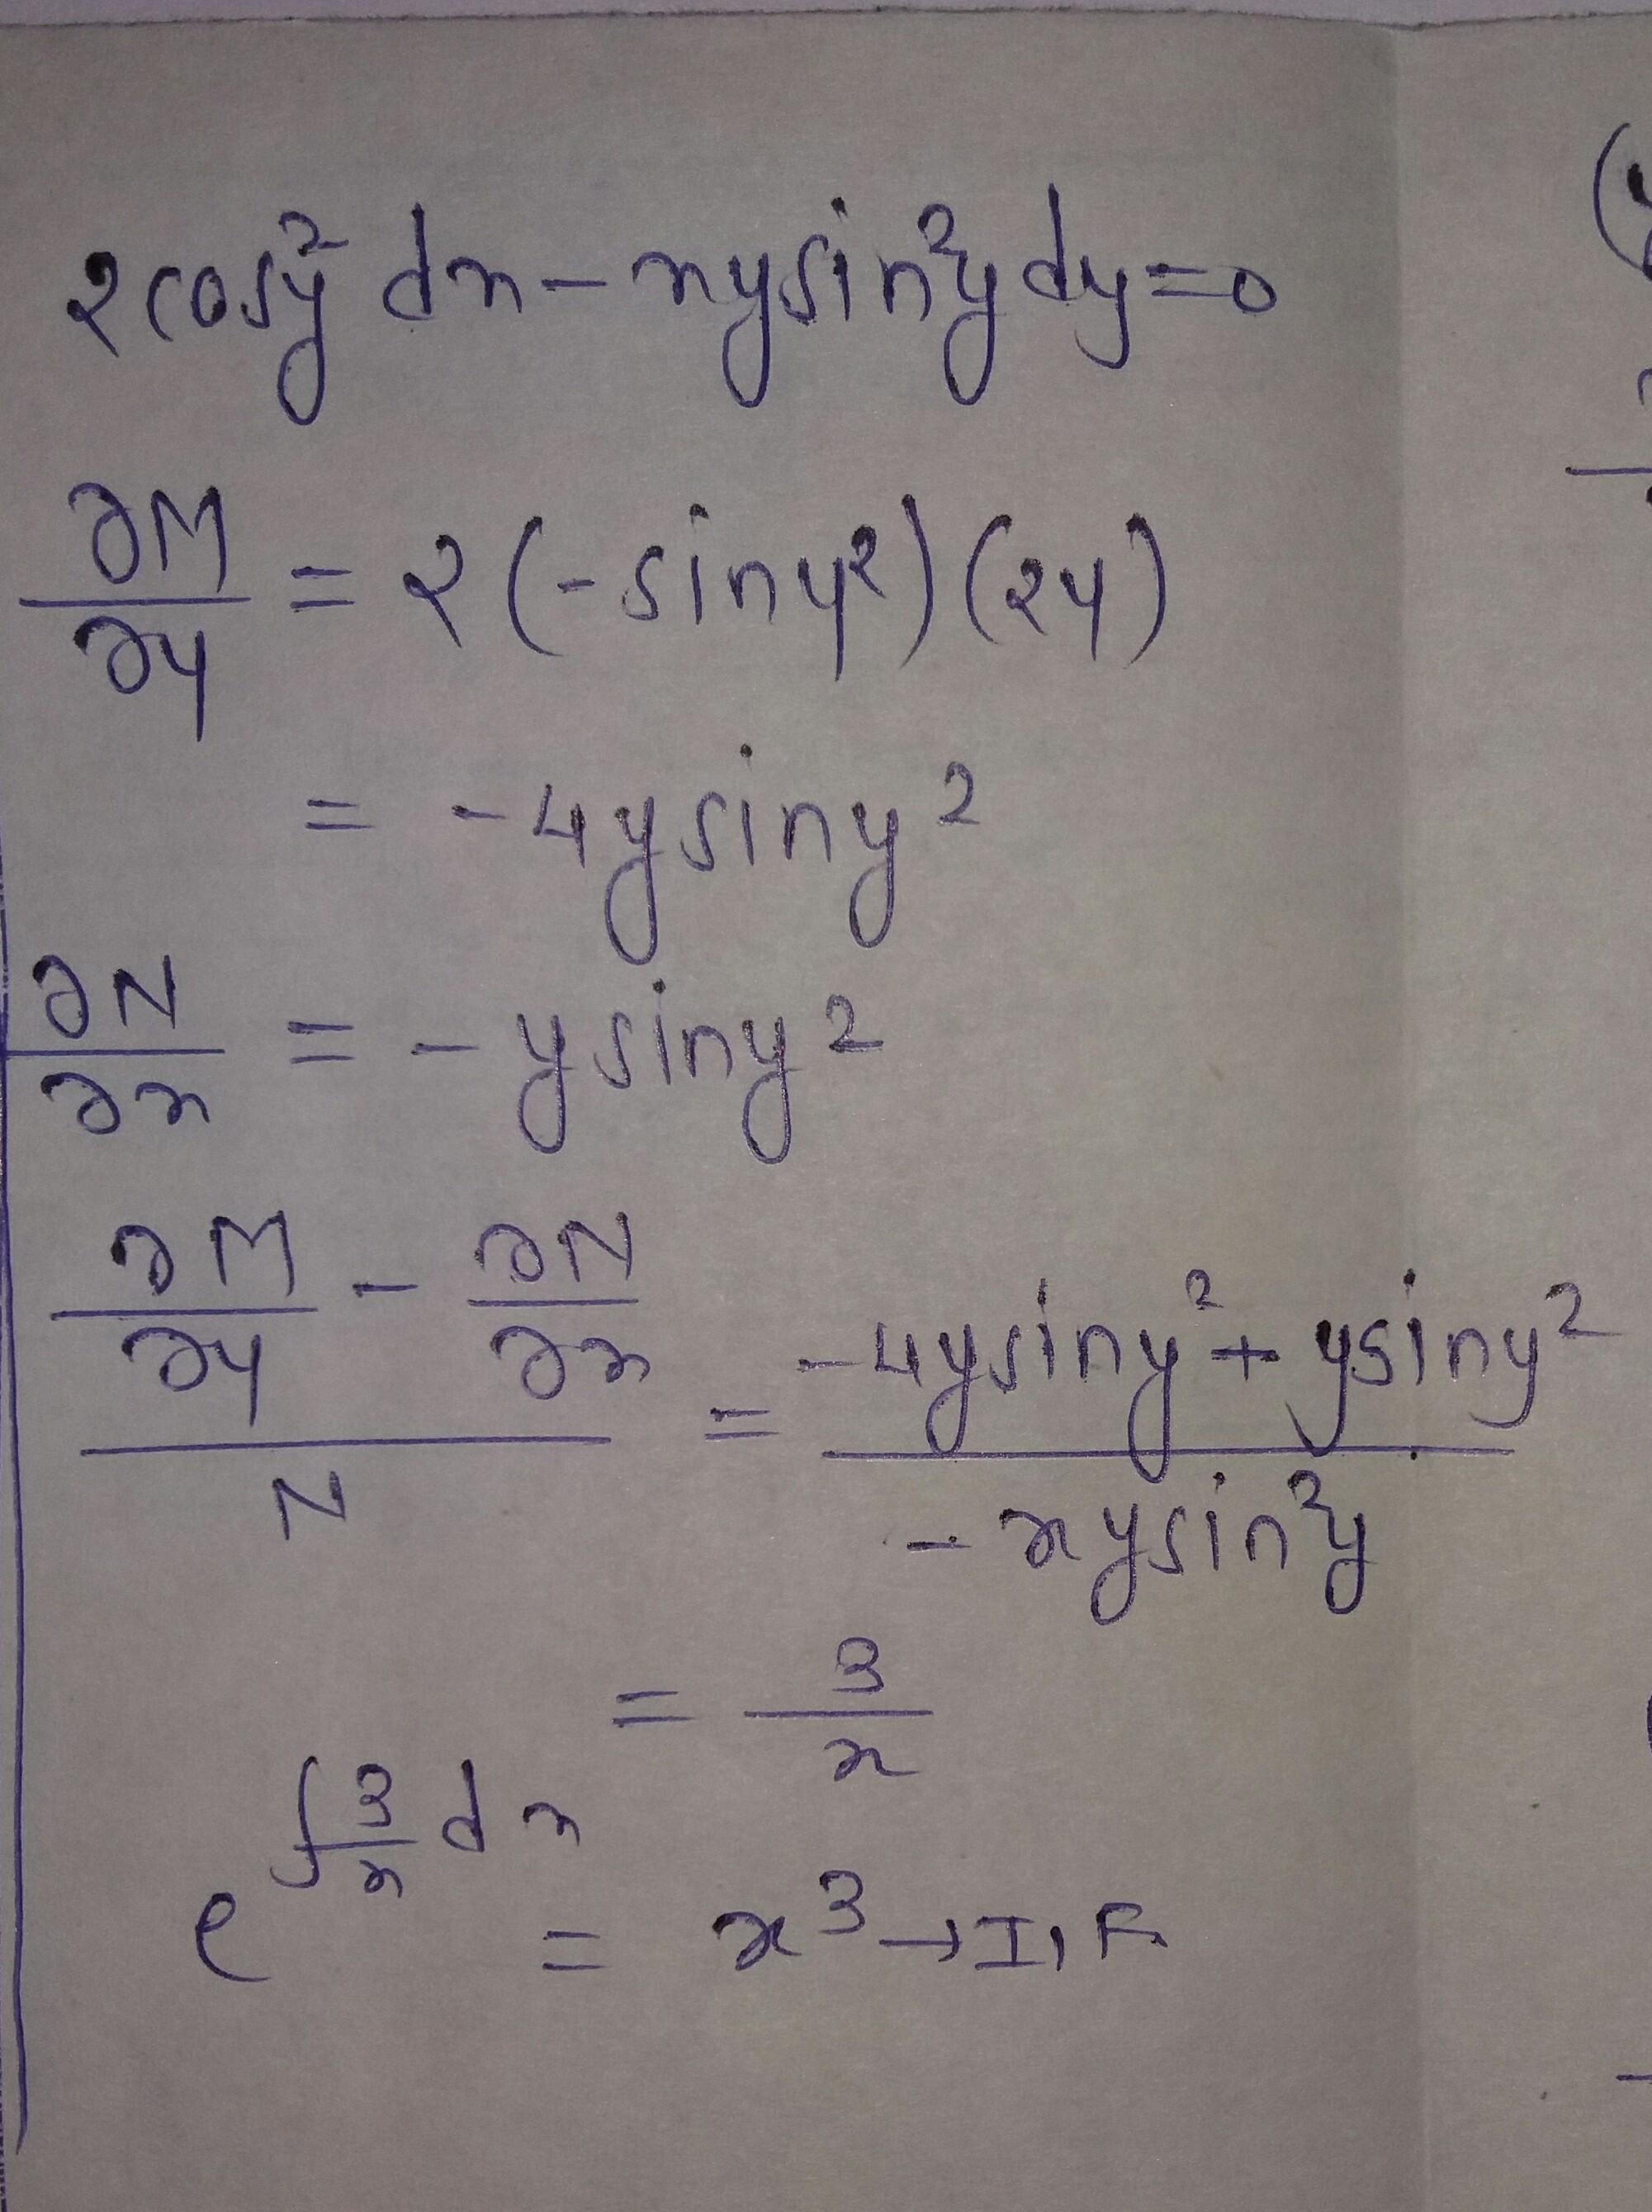 2cosy² dx - xysin²y dy = 0
∂M/∂y = 2(-siny²)(2y)
= -4ysiny²
∂N/∂x = -ysiny²
(∂M/∂y - ∂N/∂x)/N = (-4ysiny² + ysiny²)/(-xysin²y)
= 3/x
e^(∫3/x dx) = x³ → I.F.